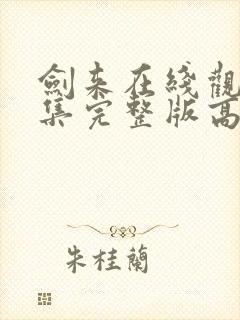 劍來在綫觀
集完整版高
朱桂蘭